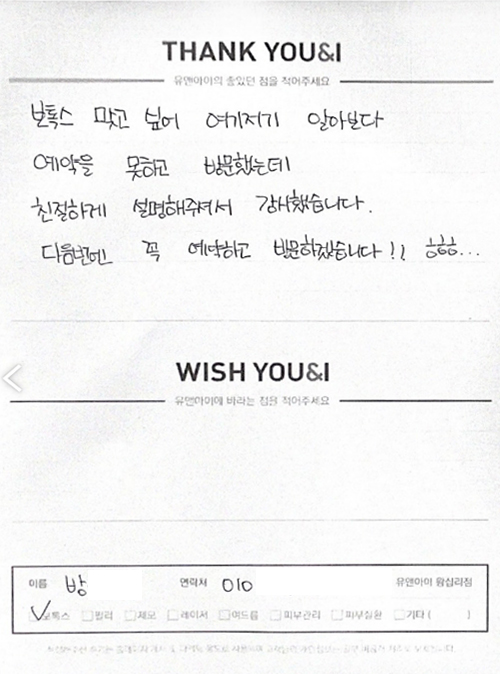 THANK YOU&I
유앤아이의 좋았던 점을 적어주세요
보톡스 맞고 싶어 여기저기 알아보다
예약을 못하고 방문했는데
친절하게 설명해주셔서 감사했습니다.
다음번엔 꼭 예약하고 방문하겠습니다!! ㅎㅎㅎ...
WISH YOU&I
유앤아이에 바라는 점을 적어주세요
이름 방 연락처 010 유앤아이 왕십리점
보톡스 필러 제모 레이저 여드름 피부관리 피부질환 기타 ( )